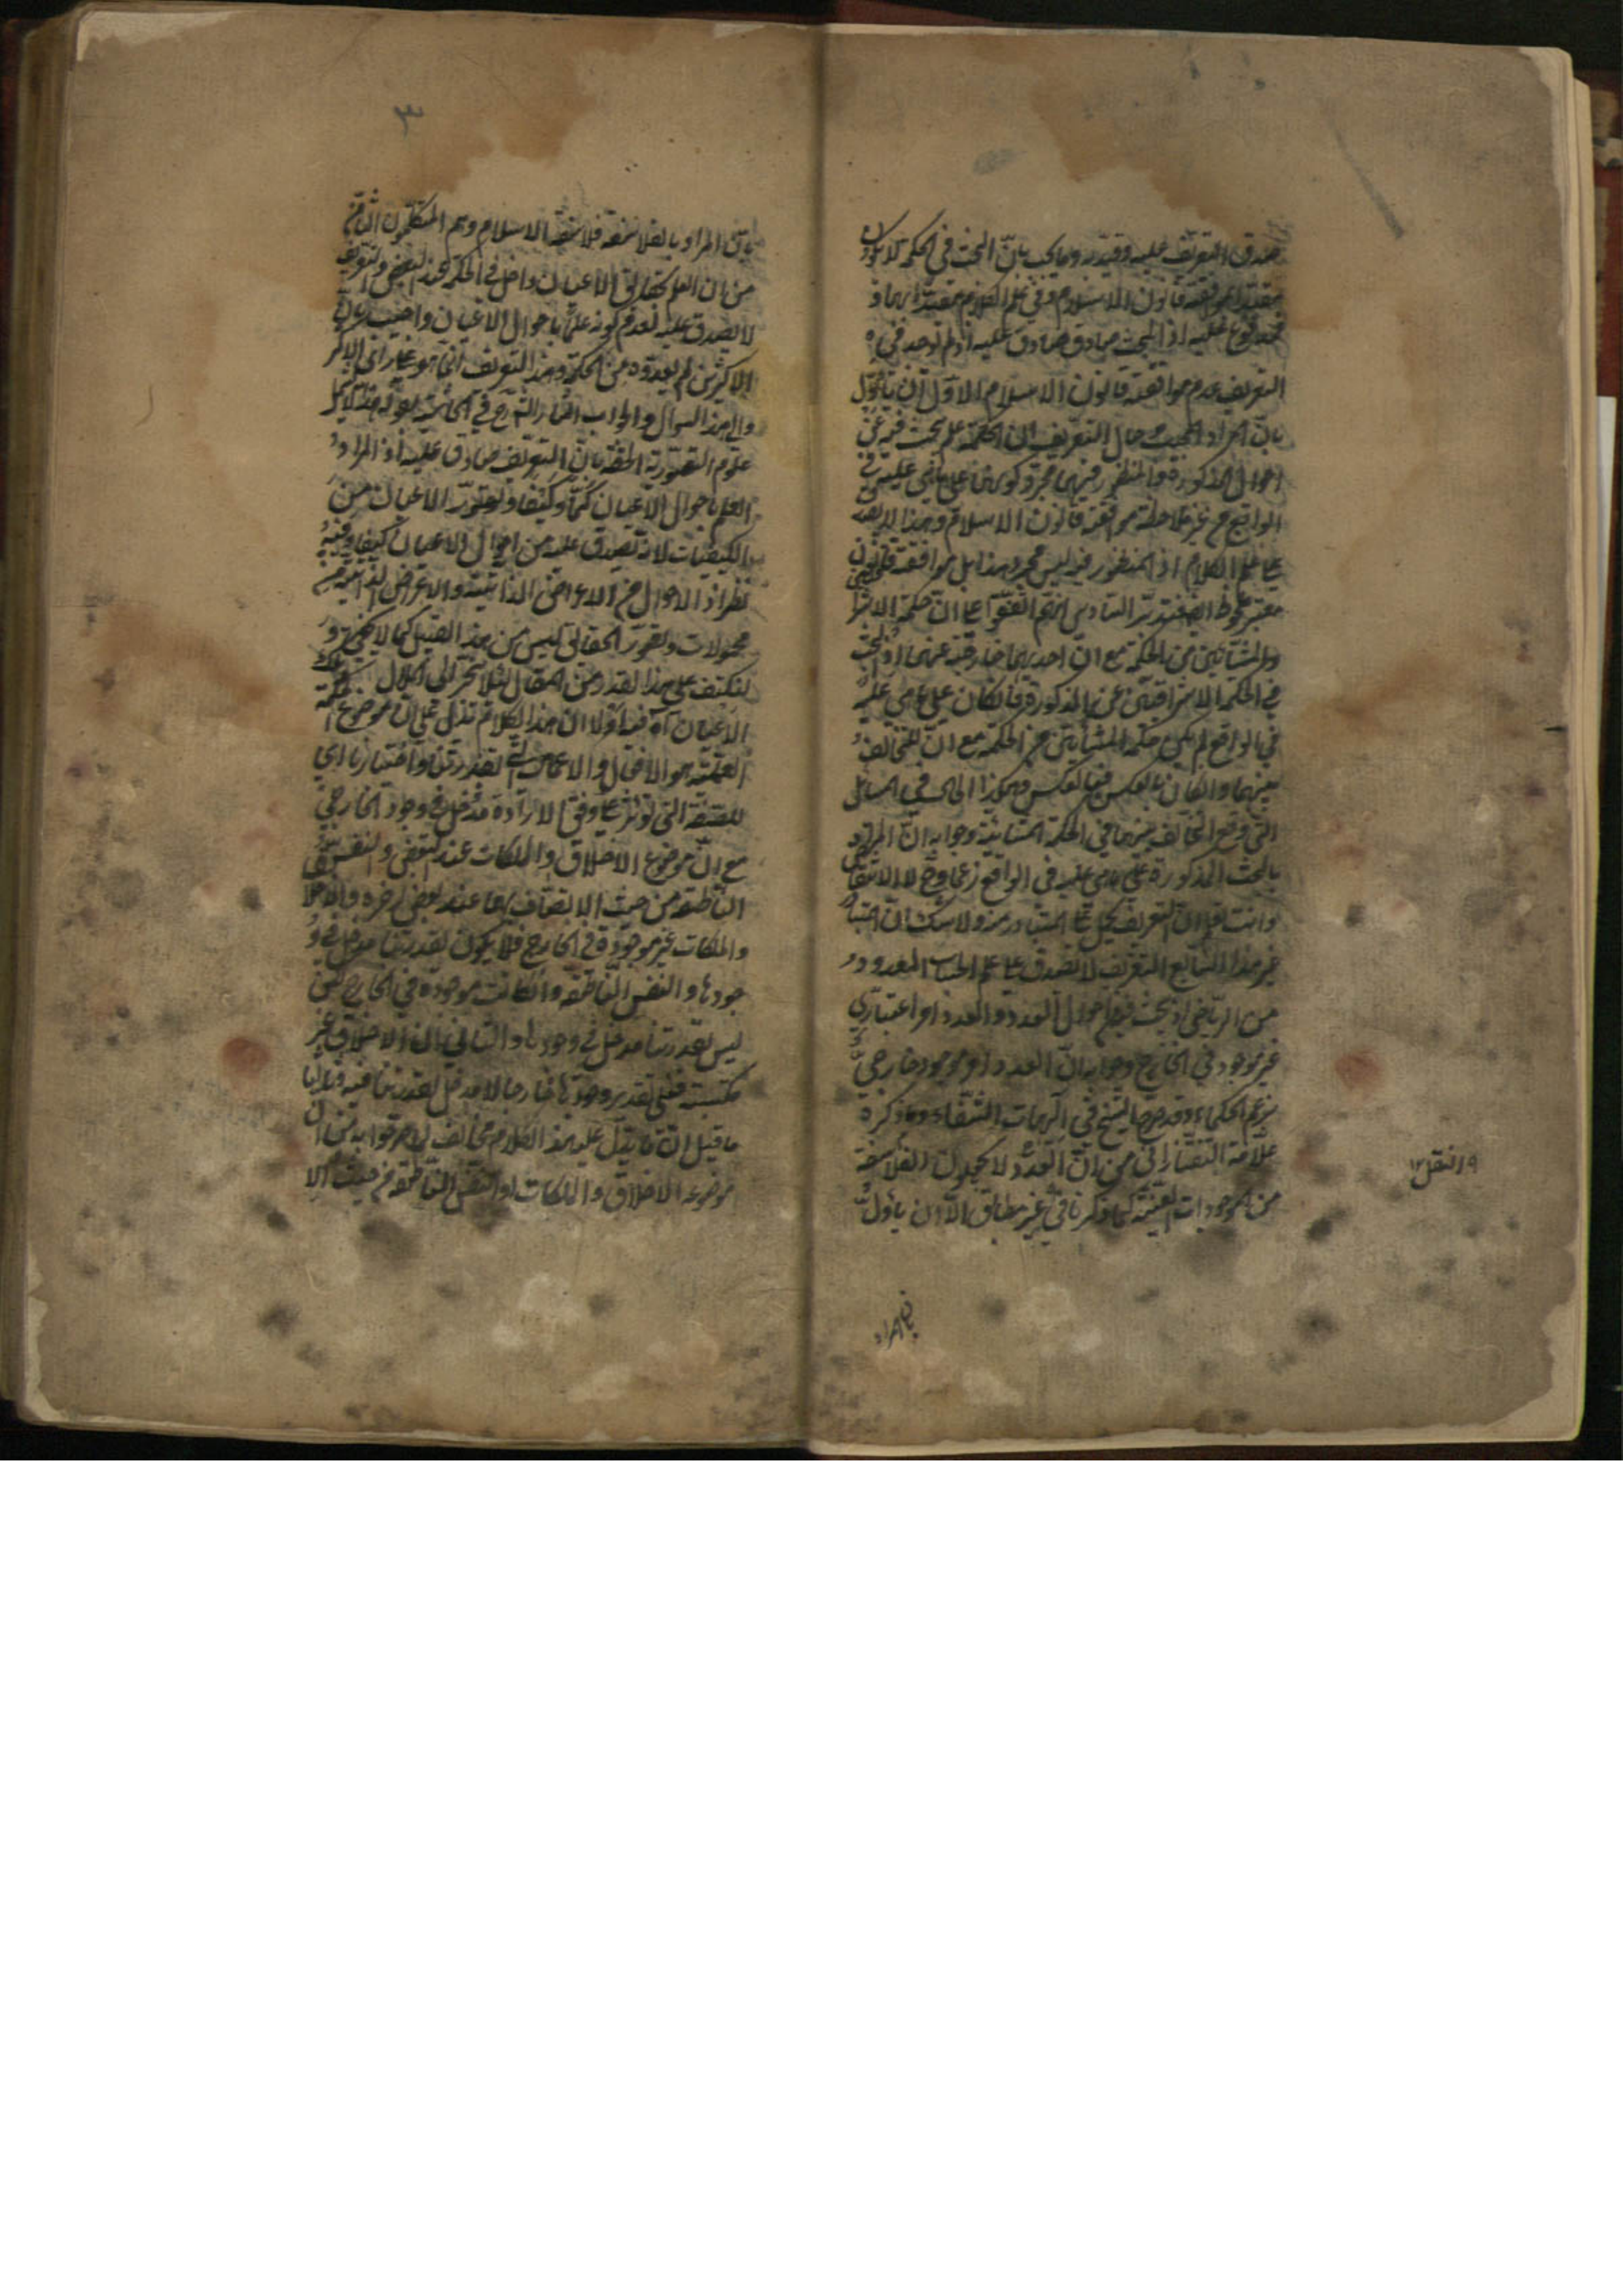 صدق التعريف عليه وقد يرد وما يجاب بانّ البحث في الحكمة لا يكون
مقيدا بموافقة قانون الاسلام وفي علم الكلام مقيد بها
فمدفوع عليه اذ البحث صادق عليه اذ لم يوخذ في
التعريف عدم موافقة قانون الاسلام الاوّل ان يأوّل
بانّ المراد بالبحث حال التعريف ان الحكمة علم يبحث فيه عن
احوال المذكورة والمنظور فيها مجرد كونها على ما هي عليه في
الواقع من غير ملاحظة موافقة قانون الاسلام وهذا لا يصدق
على علم الكلام اذ المنظور فيه ليس مجرد هذا بل موافقة قانون
معتبر ملحوظ ايضا السادس انهم اتفقوا على انّ حكمة الاشراقيين
والمشائين من الحكمة مع انّ احديهما خارقة عنها اذ البحث
في الحكمة الاشراقية عن المذكورة ان كان على ما هي عليه
في الواقع لم يكن حكمة المشائين من الحكمة مع انّ التخالف
بينهما وان كان بالعكس فبالعكس وهكذا الحال في المسائل
التي وقع التخالف فيها في الحكمة المشائية وجوابه انّ المراد
بالبحث المذكورة على ما هي عليه في الواقع زعما وح لا انتقاض
وانت تعلم انّ التعريف يحمل على المتبادر منه ولا شك ان اعتبار
غير هذا السابع التعريف لا يصدق على علم الحساب المعدود
من الرياضي اذ يبحث فيه عن احوال العدد والعدد امر اعتباري
غير موجود في الخارج وجوابه انّ العدد امر موجود خارجي
بزعم الحكماء وقد صرح الشيخ في آلهيات الشفاء وما ذكره
علّامة التفتازاني من انّ العدد لا يجعلون الفلاسفة
من الموجودات العينية كما ذكرنا في غير مطابق الّا ان يأوّل
بانّ المراد
١٩ النقل ١٢
٣
بانّ المراد بالفلاسفة فلاسفة الاسلام وهم المتكلمون الثامن
من ان العلم بحقايق الاعيان داخل في الحكمة عند البعض والتعريف
لا يصدق عليه لعدم كونه علما باحوال الاعيان واجيب بان
الاكثرين لم يعدوه من الحكمة وهذا التعريف انما هو على رأي الاكثر
والى هذا السؤال والجواب اشار الشارح في الحاشية بقوله
علوم التصورية الحقة بانّ التعريف صادق عليه اذ المراد
العلم باحوال الاعيان كمّا وكيفا وتصور الاعيان من
الكيفيات لانه يصدق عليه من احوال الاعيان كيفا وفيه
نظر اذ الاحوال من الاعراض الذاتية والاعراض الذاتية
محمولات وتصور الحقايق ليس من هذا القبيل كما لا يخفى و
لنكتف على هذا القدر من المقال لئلا ينجر الى الملال
الاعيان آه فيه اوّلا ان هذا الكلام تدل على ان موضوع الحكمة
العملية هو الافعال والاعمال التي بقدرتنا واختيارنا اي
للصفة التي تؤثر على وفق الارادة مدخل في وجود الخارجي
مع انّ موضوع الاخلاق والملكات عند البعض والنفس
الناطقة من حيث الاتصاف بها عند بعض اخر والاخلاق
والملكات غير موجودة في الخارج فلا يكون لقدرتنا مدخل في و
جودها والنفس الناطقة وان كانت موجودة في الخارج لكن
ليس لقدرتنا مدخل في وجودها والثاني ان الاخلاق غير
مكتسبة فعلى تقدير وجودها خارجا لا مدخل لقدرتنا فيه
ما قيل انّ ما يدل عليه هذا الكلام مخالف لما صرحوا به من ان
موضوعه الاخلاق والملكات او النفس الناطقة من حيث الا